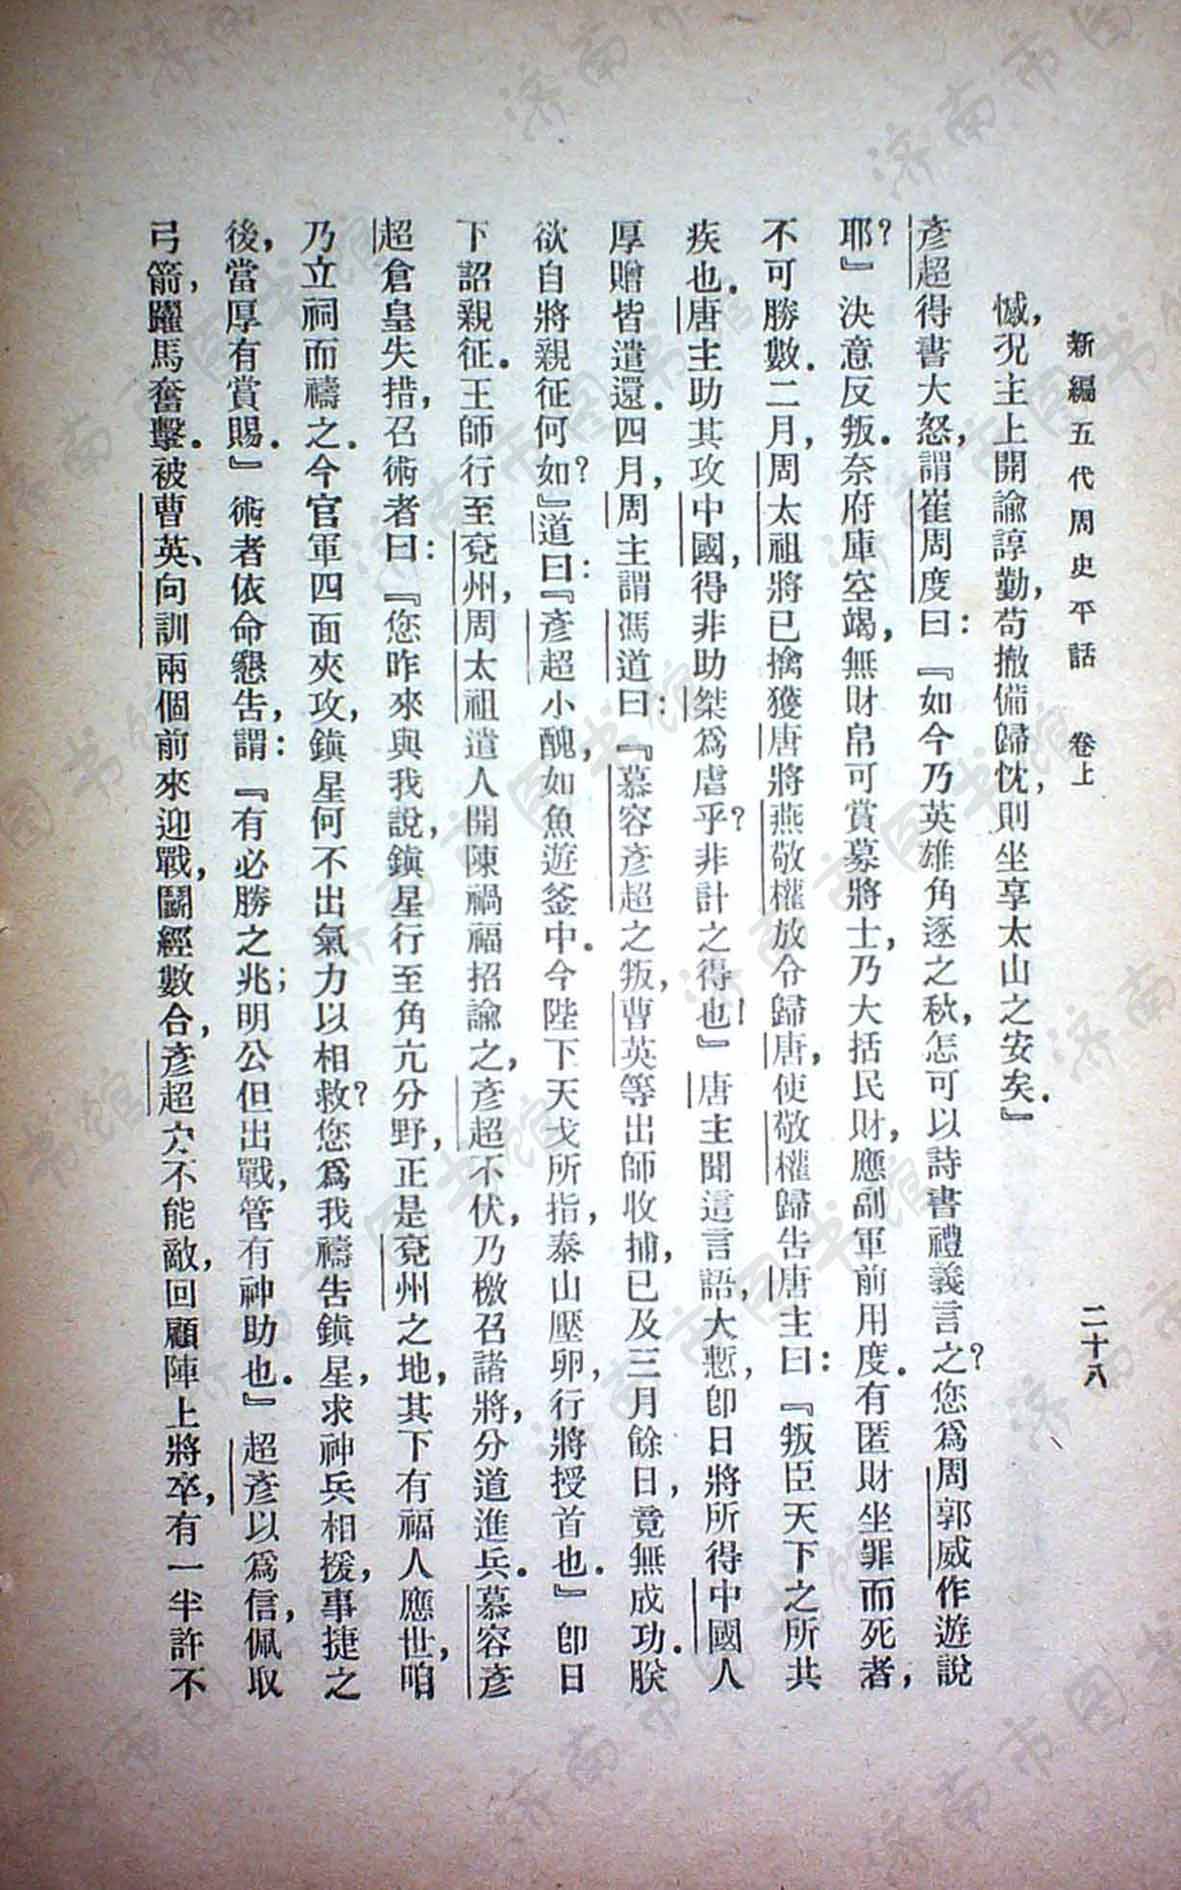 新編五代周史平話　卷上　二十八
憾，況主上開諭諄勤，苟撤備歸忱，則坐享太山之安矣．』
彥超得書大怒，謂崔周度曰：『如今乃英雄角逐之秋，怎可以詩書禮義言之？您爲周郭威作遊說
耶？』決意反叛．奈府庫空竭，無財帛可賞募將士，乃大括民財，應副軍前用度．有匿財坐罪而死者，
不可勝數．二月，周太祖將已擒獲唐將燕敬權放令歸唐，使敬權歸告唐主曰：『叛臣天下之所共
疾也．唐主助其攻中國，得非助桀爲虐乎？非計之得也！』唐主聞這言語，大慙，卽日將所得中國人
厚贈皆遣還．四月，周主謂馮道曰：『慕容彥超之叛，曹英等出師收捕，已及三月餘日，竟無成功．朕
欲自將親征何如？』道曰：『彥超小醜，如魚遊釜中．今陛下天戈所指，泰山壓卵，行將授首也．』卽日
下詔親征．王師行至兗州，周太祖遣人開陳禍福招諭之，彥超不伏，乃檄召諸將，分道進兵．慕容彥
超倉皇失措，召術者曰：『您昨來與我說，鎮星行至角亢分野，正是兗州之地，其下有福人應世，咱
乃立祠而禱之．今官軍四面夾攻，鎮星何不出氣力以相救？您爲我禱告鎮星，求神兵相援，事捷之
後，當厚有賞賜．』術者依命懇告，謂：『有必勝之兆；明公但出戰，管有神助也．』超彥以爲信，佩取
弓箭，躍馬奮擊．被曹英、向訓兩個前來迎戰，鬭經數合，彥超力不能敵，回顧陣上將卒，有一半許不
濟南市图书馆